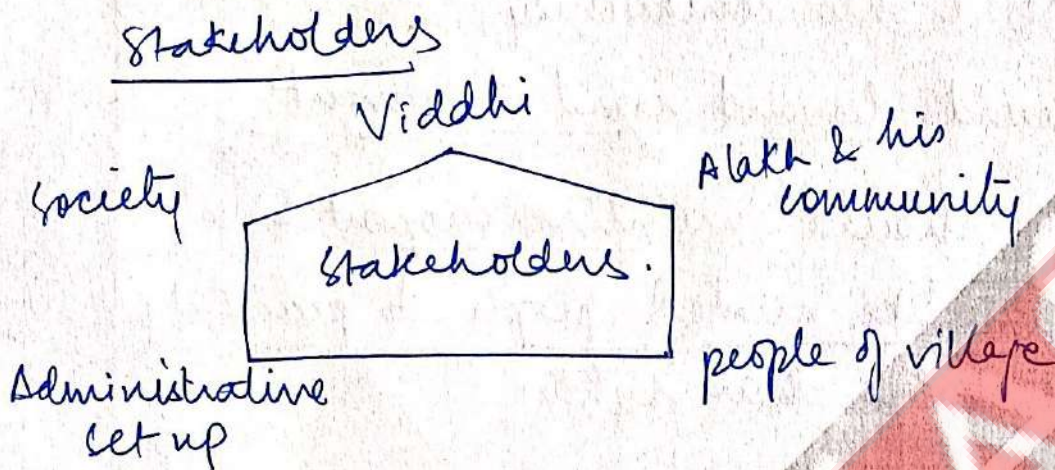 Stakeholders
Viddhi
Society
Alakh & his
community
Stakeholders.
Administrative
set up
people of village